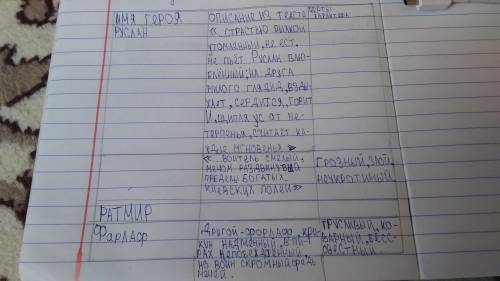 ИМЯ ГЕРОЯ
ОПИСАНИЕ ИЗ ТЕКСТА
ЧЕРТЫ
ХАРАКТЕРА
РУСЛАН
« СТРАСТЬЮ ПЫЛКОЙ
УТОМЛЕННЫЙ, НЕ ЕСТ,
НЕ ПЬЁТ РУСЛАН ВЛЮ-
БЛЁННЫЙ; НА ДРУГА
МИЛОГО ГЛЯДИД, ВЗДЫ-
ХАЕТ, СЕРДИТСЯ, ГОРИТ
И, ЩИПЛЯ УС ОТ НЕ-
ТЕРПЕНЬЯ, СЧИТАЕТ КА-
ЖДЫЕ МГНОВЕНЬЯ »
« ...ВОИТЕЛЬ СМЕЛЫЙ,
МЕЧОМ РАЗДВИНУВШИЙ
ПРЕДЕЛЫ БОГАТЫХ
КИЕВСКИХ ПОЛЕЙ »
ГРОЗНЫЙ, ЗЛОЙ,
НЕУКРОТИМЫЙ
РАТМИР
ФАРЛАФ
ДРУГОЙ-ФАРЛАФ, КРИ-
КУН НАДМЕННЫЙ, В ПИ-
РАХ НЕПОБЕЖДЕННЫЙ,
НО ВОИН СКРОМНЫЙ СРЕДЬ
МЕЧЕЙ.
ТРУСЛИВЫЙ, КО-
ВАРНЫЙ, БЕСС-
ОВЕСТНЫЙ